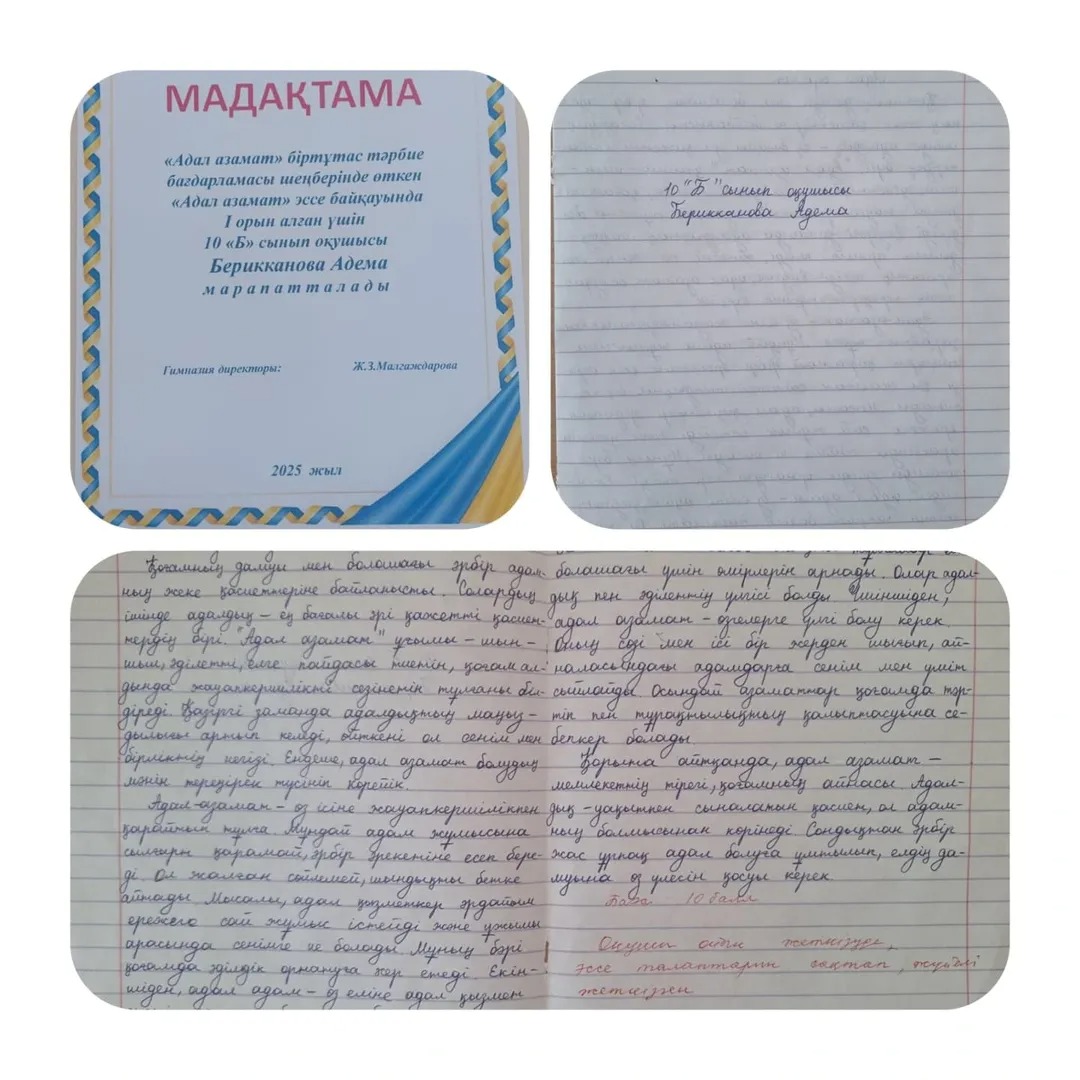 МАДАҚТАМА
«Адал азамат» біртұтас тәрбие
бағдарламасы шеңберінде өткен
«Адал азамат» эссе байқауында
І орын алған үшін
10 «Б» сынып оқушысы
Берикканова Адема
марапатталады
Гимназия директоры: Ж.З.Малгаждарова
2025 жыл
10 "Б" сынып оқушысы
Берикканова Адема
Қоғамның дамуы мен болашағы әрбір адам-
ның жеке қасиеттеріне байланысты. Солардың
ішінде адалдық – ең бағалы әрі қажетті қасиет-
тердің бірі. "Адал азамат" ұғымы – шын-
шыл, әділетті, елге пайдасы тиетін, қоғам ал-
дында жауапкершілікті сезінетін тұлғаны біл-
діреді. Қазіргі заманда адалдықтың маңыз-
дылығы артып келеді, өйткені ол сенім мен
бірліктің негізі. Ендеше, адал азамат болудың
мәнін тереңірек түсініп көрейік.
Адал азамат – өз ісіне жауапкершілікпен
қарайтын тұлға. Мұндай адам жұмысына
салғырт қарамай, әрбір әрекетіне есеп бере-
ді. Ол жалған сөйлемей, шындықты бетке
айтады. Мысалы, адал қызметкер әрдайым
ережеге сай жұмыс істейді және ұжымы
арасында сенімге ие болады. Мұның бәрі
қоғамда әділдік орнауға жер етеді. Екін-
шіден, адал адам – өз еліне адал қызмет
болашағы үшін өмірлерін арнады. Олар адал-
дық пен әділеттің үлгісі болды. Үшіншіден,
адал азамат – өзгелерге үлгі болу керек.
Оның сөзі мен ісі бір жерден шығып, ай-
наласындағы адамдарға сенім мен үміт
сыйлайды. Осындай азаматтар қоғамда тәр-
тіп пен тұрақтылықтың қалыптасуына се-
бепкер болады.
Қорыта айтқанда, адал азамат –
мемлекеттің тірегі, қоғамның айнасы. Адал-
дық – уақытпен сыналатын қасиет, ол адам-
ның болмысынан көрінеді. Сондықтан әрбір
жас ұрпақ адал болуға ұмтылып, елдің да-
муына өз үлесін қосуы керек.
Баға 10 балл
Оқушы ойын жеткізуде,
эссе талаптарын сақтап, жүйелі
жеткізген